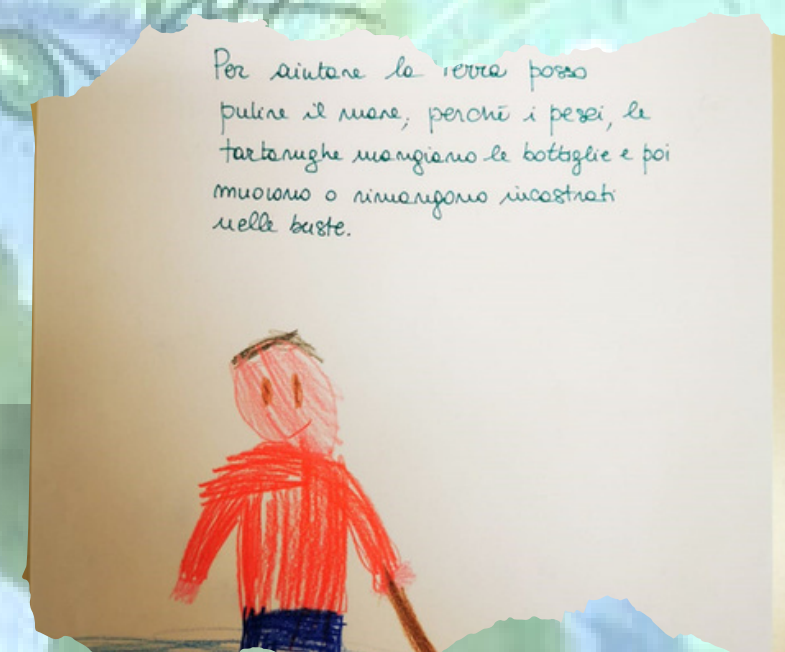 Per aiutare la Terra posso
pulire il mare, perché i pesci, le
tartarughe mangiano le bottiglie e poi
muoiono o rimangono incastrati
nelle buste.